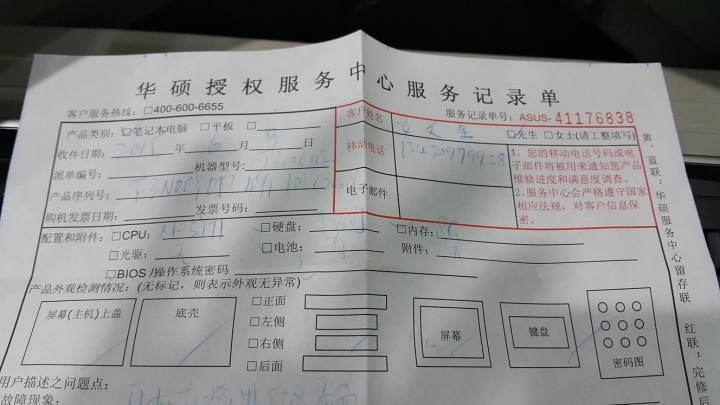 华硕授权服务中心服务记录单
客户服务热线：□400-600-6655
服务记录单号：ASUS-41176838
产品类别：□笔记本电脑 □平板 □
收件日期： 2015 年 6 月 9 日
派单号： 机器型号：
产品序列号：
购机发票日期： 发票号码：
客户姓名 □先生 □女士(请工整填写)
移动电话
电子邮件
1、您的移动电话号码或电
子邮件将被用来通知您产品
维修进度和满意度调查。
2、服务中心会严格遵守国家
相应法规，对客户信息保
密。
配置和附件：□CPU： □硬盘： □内存： 8G
□光驱： 无 □电池： 有 附件： 无
□BIOS /操作系统密码
产品外观检测情况：(无标记，则表示外观无异常)
屏幕(主机)上盖
底壳
□正面
□左侧
□右侧
□后面
屏幕
键盘
密码图
用户描述之问题点：
故障现象：
黄、蓝联：华硕服务中心留存联 红联：完修后